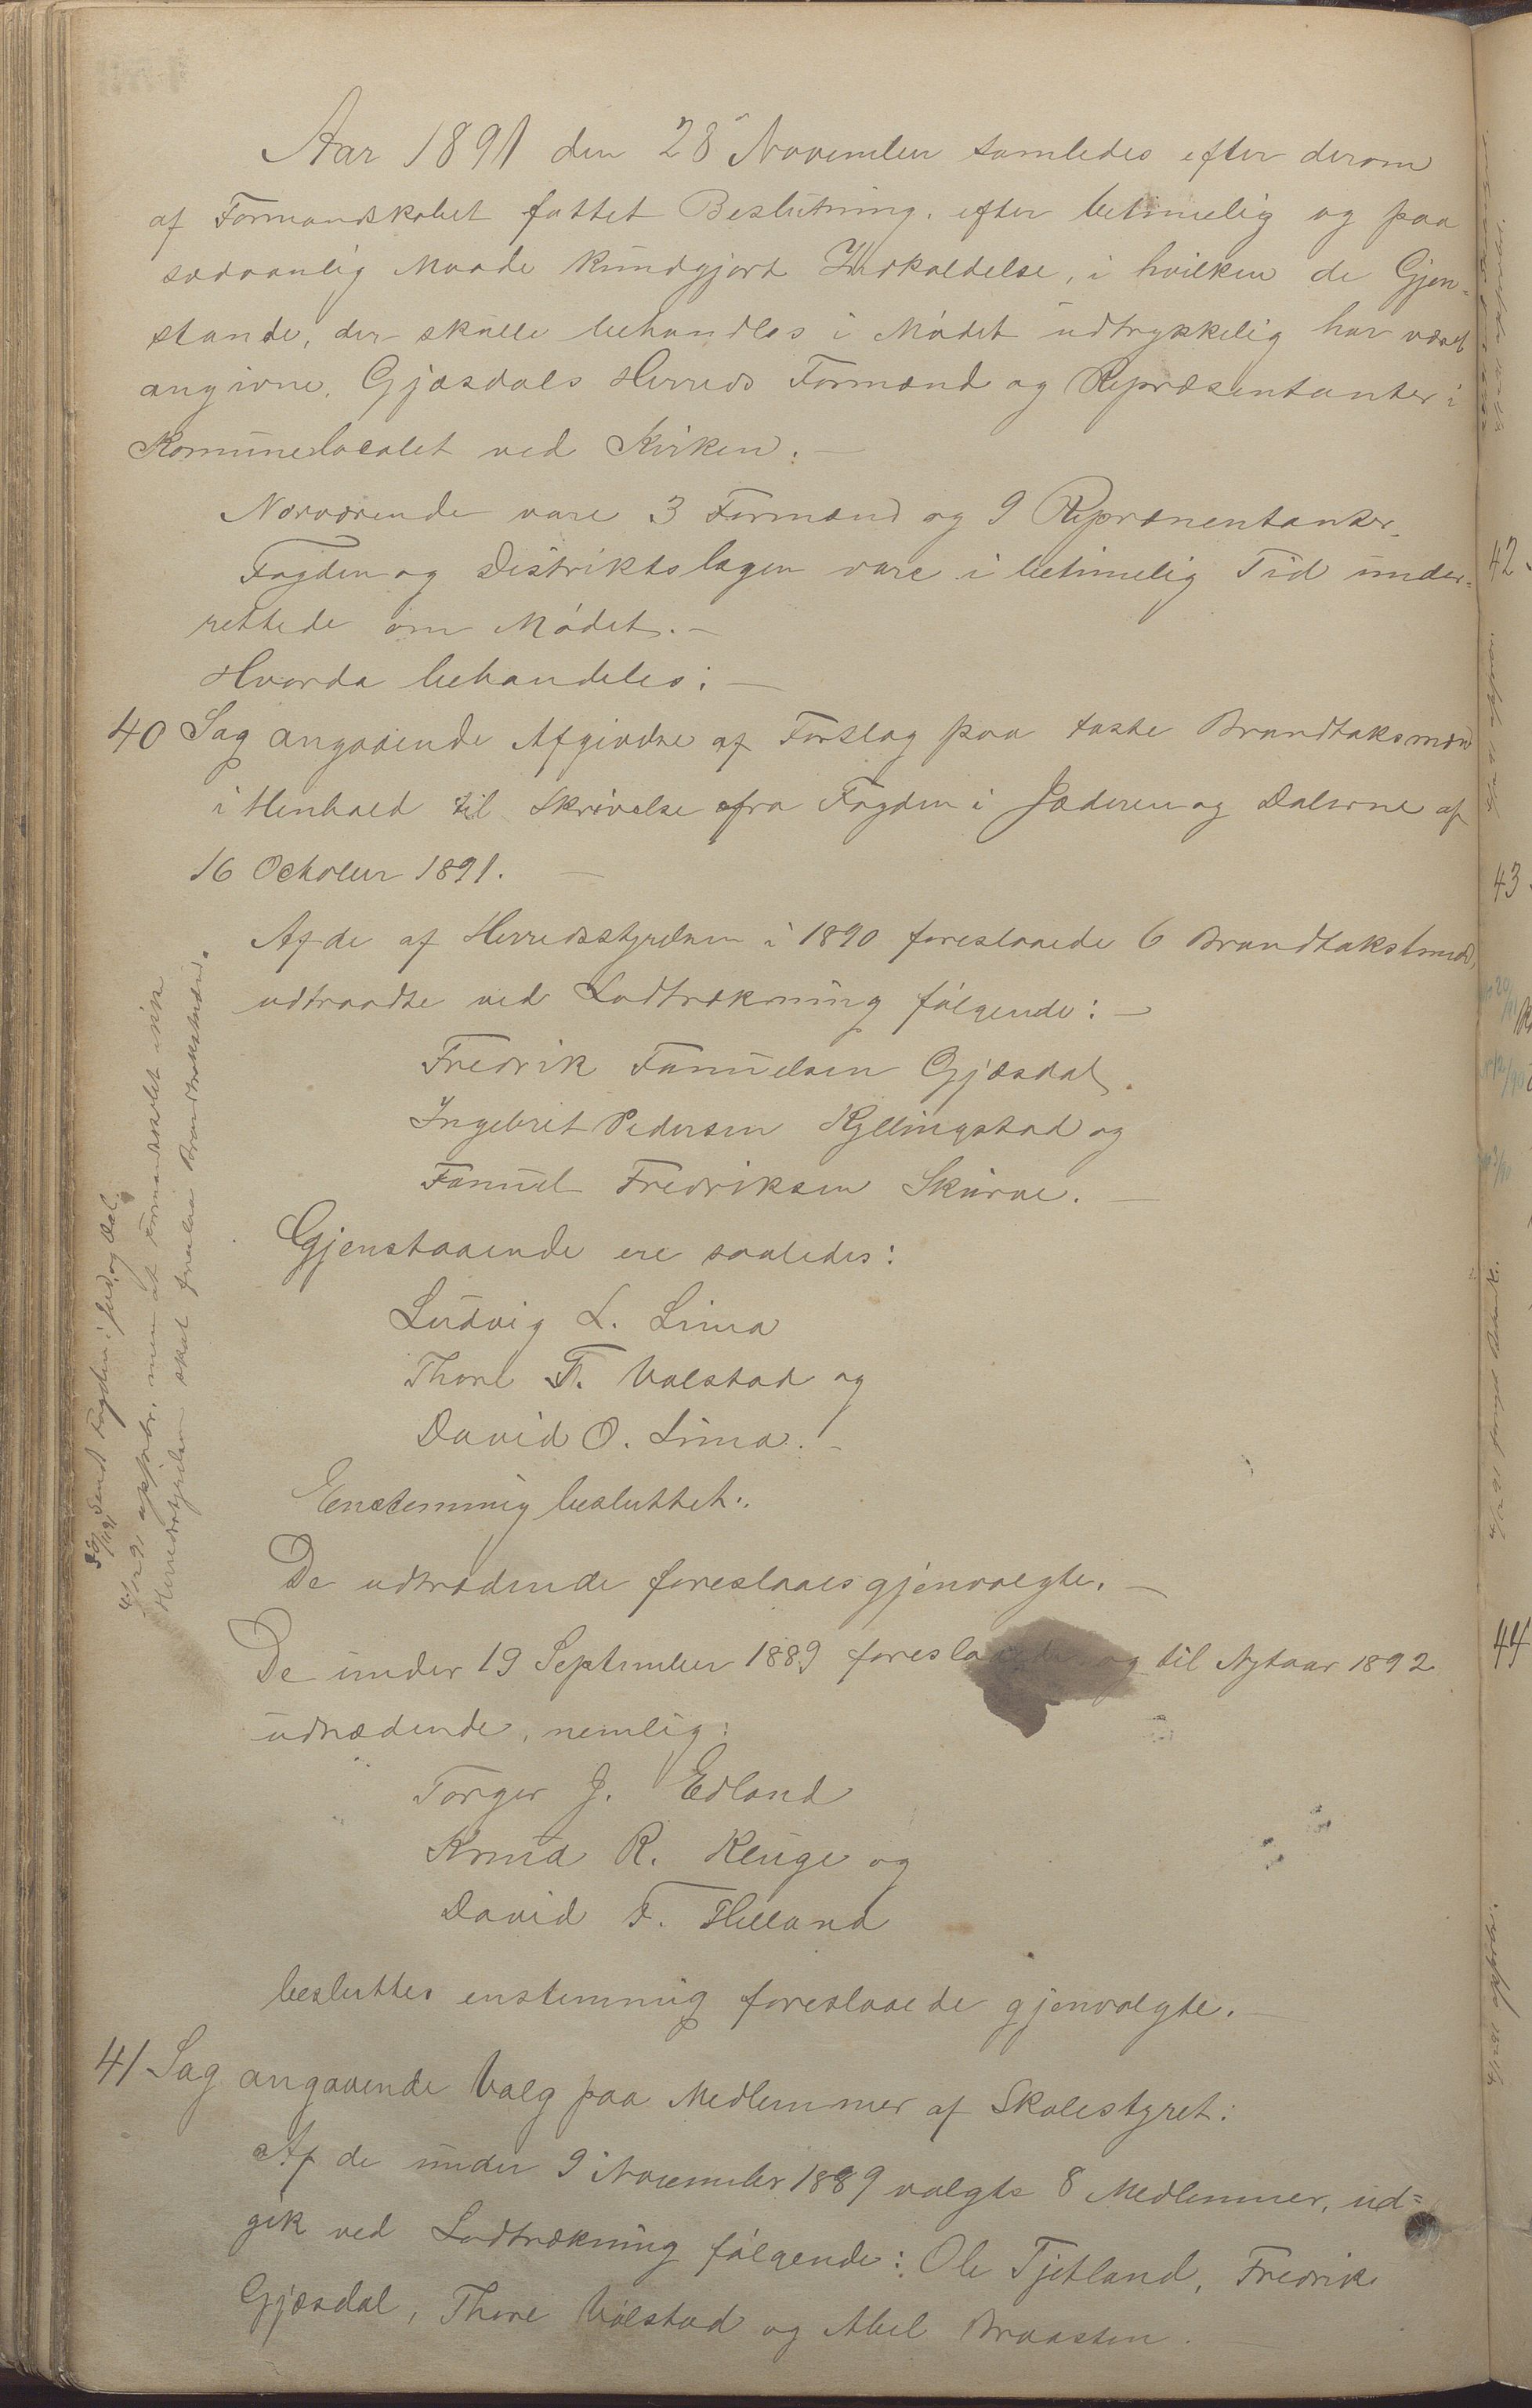 Aar 1891 den 28 November samledes efter derom
af Formandskabet fattet Beslutning, efter betimelig og paa
sedvanlig Maade kundgjord Indkaldelse, i hvilken de Gjen-
stande, der skulle behandles i Mødet udtrykkelig har været
angivne, Gjæsdals Herreds Formænd og Repræsentanter i
Komunelocalet ved Kirken. —
Nærværende vare 3 Formænd og 9 Repræsentanter.
Fogden og Distriktslægen vare i betimelig Tid under-
rettede om Mødet. —
Hvorda behandeles: —
40 Sag angaaende Afgivelse af Forslag paa faste Brandtaksmænd
i Henhold til Skrivelse fra Fogden i Jæderen og Dalerne af
16 October 1891. —
Af de af Herredsstyrelsen i 1890 foreslaaede 6 Brandtakstmænd,
udtraadte ved Lodtrækning følgende: —
Fredrik Famuelsen Gjæsdal,
Ingebret Pedersen Kyllingstad og
Famuel Fredriksen Skurve. —
Gjenstaaende ere saaledes:
Ludvig L. Lima
Thore T. Valstad og
David O. Lima. —
Enstemmig besluttet:
De udtrædende foreslaaes gjenvalgte. —
De under 19 September 1889 foreslaaede og til Nytaar 1892
udtrædende, nemlig:
Torger J. Edland
Knud R. Kluge og
David F. Helland
besluttes enstemmig foreslaaede gjenvalgte. —
41 Sag angaaende Valg paa Medlemmer af Skolestyret:
Af de under 9 November 1889 valgte 8 Medlemmer, ud-
gik ved Lodtrækning følgende: Ole Tjetland, Fredrik
Gjæsdal, Thore Valstad og Abel Braasten. —
30/11 91 Sendt Fogden i Jæd. og Dal.
4/12 91 approb., men at Formandskabet ikke
Herredsstyrelsen skal foreslaa Brandtakstmænd.
42
43
44